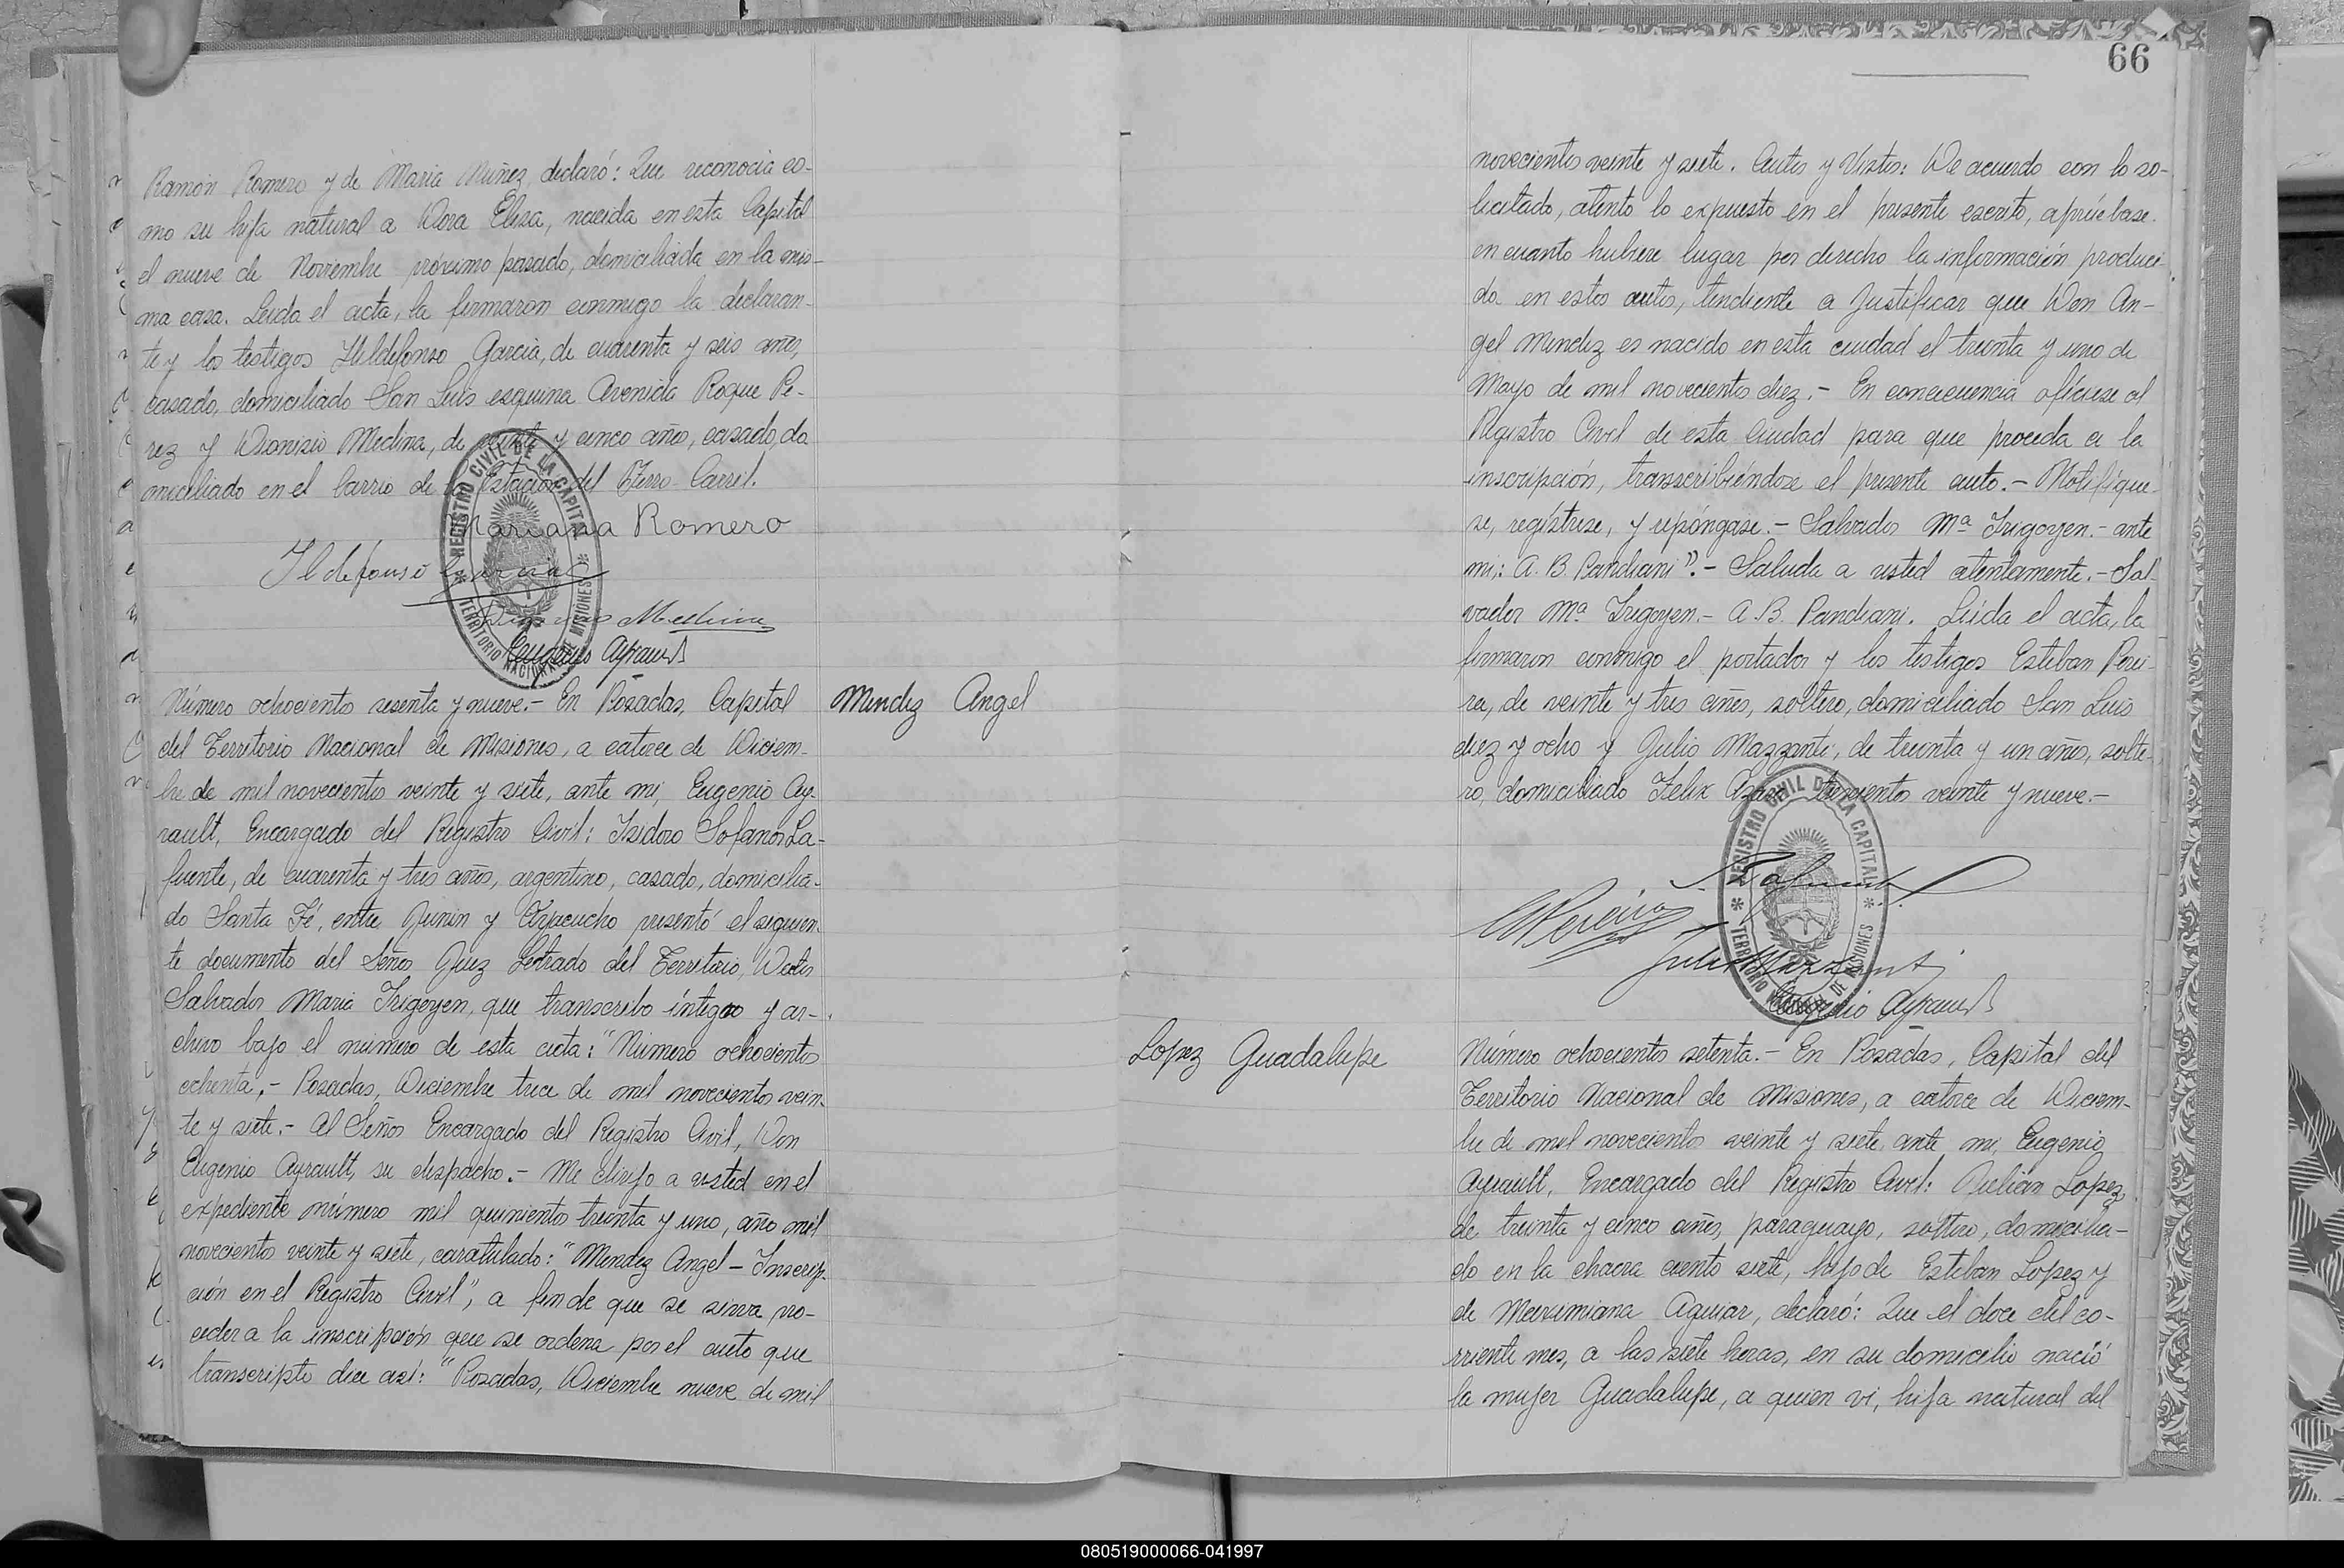 Ramón Romero y de Maria Muñez, declaró: Que reconocia co-
mo su hija natural a Dora Elisa, nacida en esta Capital
el nueve de Noviembre próximo pasado, domiciliada en la mis-
ma casa. Leida el acta, la firmaron conmigo la declaran-
te y los testigos Ildefonso Garcia, de cuarenta y seis años,
casado, domiciliado San Luis esquina Avenida Roque Pe-
rez y Dionisio Medina, de y cinco años, casado, do
miciliado en el barrio de la Estación del Ferro-Carril.
Mariana Romero
Ildefonso Garcia
Medina
Eugenio Ayrault
REGISTRO CIVIL DE LA CAPITAL
TERRITORIO NACIONAL DE MISIONES
Número ochocientos sesenta y nueve.- En Posadas, Capital
del Territorio Nacional de Misiones, a catorce de Diciem-
bre de mil novecientos veinte y siete, ante mi, Eugenio Ay-
rault, Encargado del Registro Civil: Isidoro Sofanor La-
fuente, de cuarenta y tres años, argentino, casado, domicilia-
do Santa Fé, entre Junin y Ayacucho presentó el siguien-
te documento del Señor Juez Letrado del Territorio, Doctor
Salvador Maria Irigoyen, que transcribo íntegro y ar-
chivo bajo el número de esta acta: "Número ochocientos
ochenta.- Posadas, Diciembre trece de mil novecientos vein-
te y siete.- Al Señor Encargado del Registro Civil, Don
Eugenio Ayrault, su despacho.- Me dirijo a usted en el
expediente número mil quinientos treinta y uno, año mil
novecientos veinte y siete, caratulado: "Mendez Angel - Inscrip-
ción en el Registro Civil", a fin de que se sirva pro-
ceder a la inscripción que se ordena por el auto que
transcripto dice así: "Posadas, Diciembre nueve de mil
Mendez Angel
66
novecientos veinte y siete. Autos y Vistos: De acuerdo con lo so-
licitado, atento lo expuesto en el presente escrito, apruébase
en cuanto hubiere lugar por derecho la información produci-
da en estos autos, tendiente a Justificar que Don An-
gel Mendez es nacido en esta ciudad el treinta y uno de
Mayo de mil novecientos diez.- En concecuencia ofíciese al
Registro Civil de esta Ciudad para que proceda a la
inscripción, transcribiéndose el presente auto.- Notifíque
se, regístrese, y repóngase.- Salvador Mª Irigoyen.- ante
mi: A. B. Pandiani".- Saluda a usted atentamente.- Sal
vador Mª Irigoyen.- A. B. Pandiani. Leida el acta, la
firmaron conmigo el portador y los testigos Esteban Perei-
ra, de veinte y tres años, soltero, domiciliado San Luis
diez y ocho y Julio Mazzanti, de treinta y un años, solte-
ro, domiciliado Felix Azara trescientos veinte y nueve.-
Lafuente
EPereira
Julio Mazzanti
Eugenio Ayrault
REGISTRO CIVIL DE LA CAPITAL
TERRITORIO NACIONAL DE MISIONES
Lopez Guadalupe
Número ochocientos setenta.- En Posadas, Capital del
Territorio Nacional de Misiones, a catorce de Diciem-
bre de mil novecientos veinte y siete, ante mi, Eugenio
Ayrault, Encargado del Registro Civil: Julián Lopez,
de treinta y cinco años, paraguayo, soltero, domicilia-
do en la chacra ciento siete, hijo de Esteban Lopez y
de Meximiana Aguiar, declaró: Que el doce del co-
rriente mes, a las siete horas, en su domicilio nació
la mujer Guadalupe, a quien vi, hija natural del
080519000066-041997